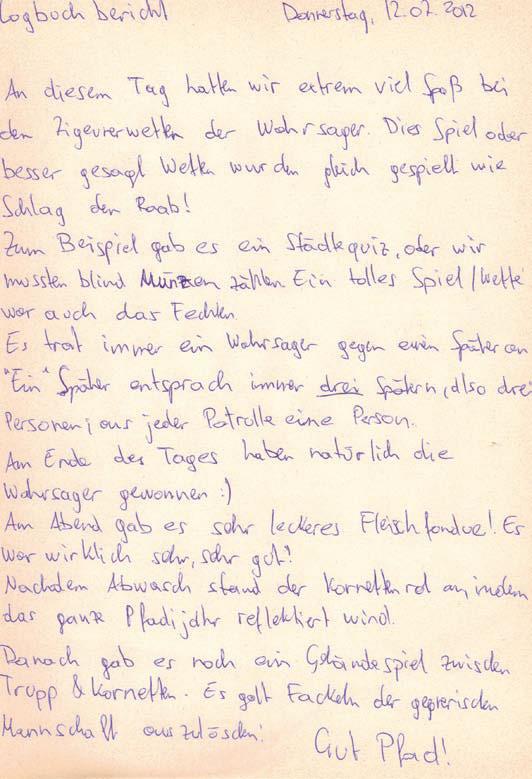 Logbuch bericht Donnerstag, 12.07.2012
An diesem Tag hatten wir extrem viel Spaß bei
den Zigeunerwetten der Wahrsager. Dies Spiel oder
besser gesagt Wetten wurden gleich gespielt wie
Schlag den Raab!
Zum Beispiel gab es ein Städtequiz, oder wir
mussten blind Münzen zählen. Ein tolles Spiel/Wette
war auch das Fechten.
Es trat immer ein Wahrsager gegen einen Späher an
"Ein" Späher entsprach immer drei Spähern, also drei
Personen; aus jeder Patrolle eine Person.
Am Ende des Tages haben natürlich die
Wahrsager gewonnen :)
Am Abend gab es sehr leckeres Fleischfondue! Es
war wirklich sehr, sehr gut!
Nachdem Abwasch stand der Kornettenrat an, indem
das ganze Pfadijahr reflektiert wird.
Danach gab es noch ein Geländespiel zwischen
Trupp & Kornetten. Es galt Fackeln der gegnerischen
Mannschaft auszulöschen!
Gut Pfad!